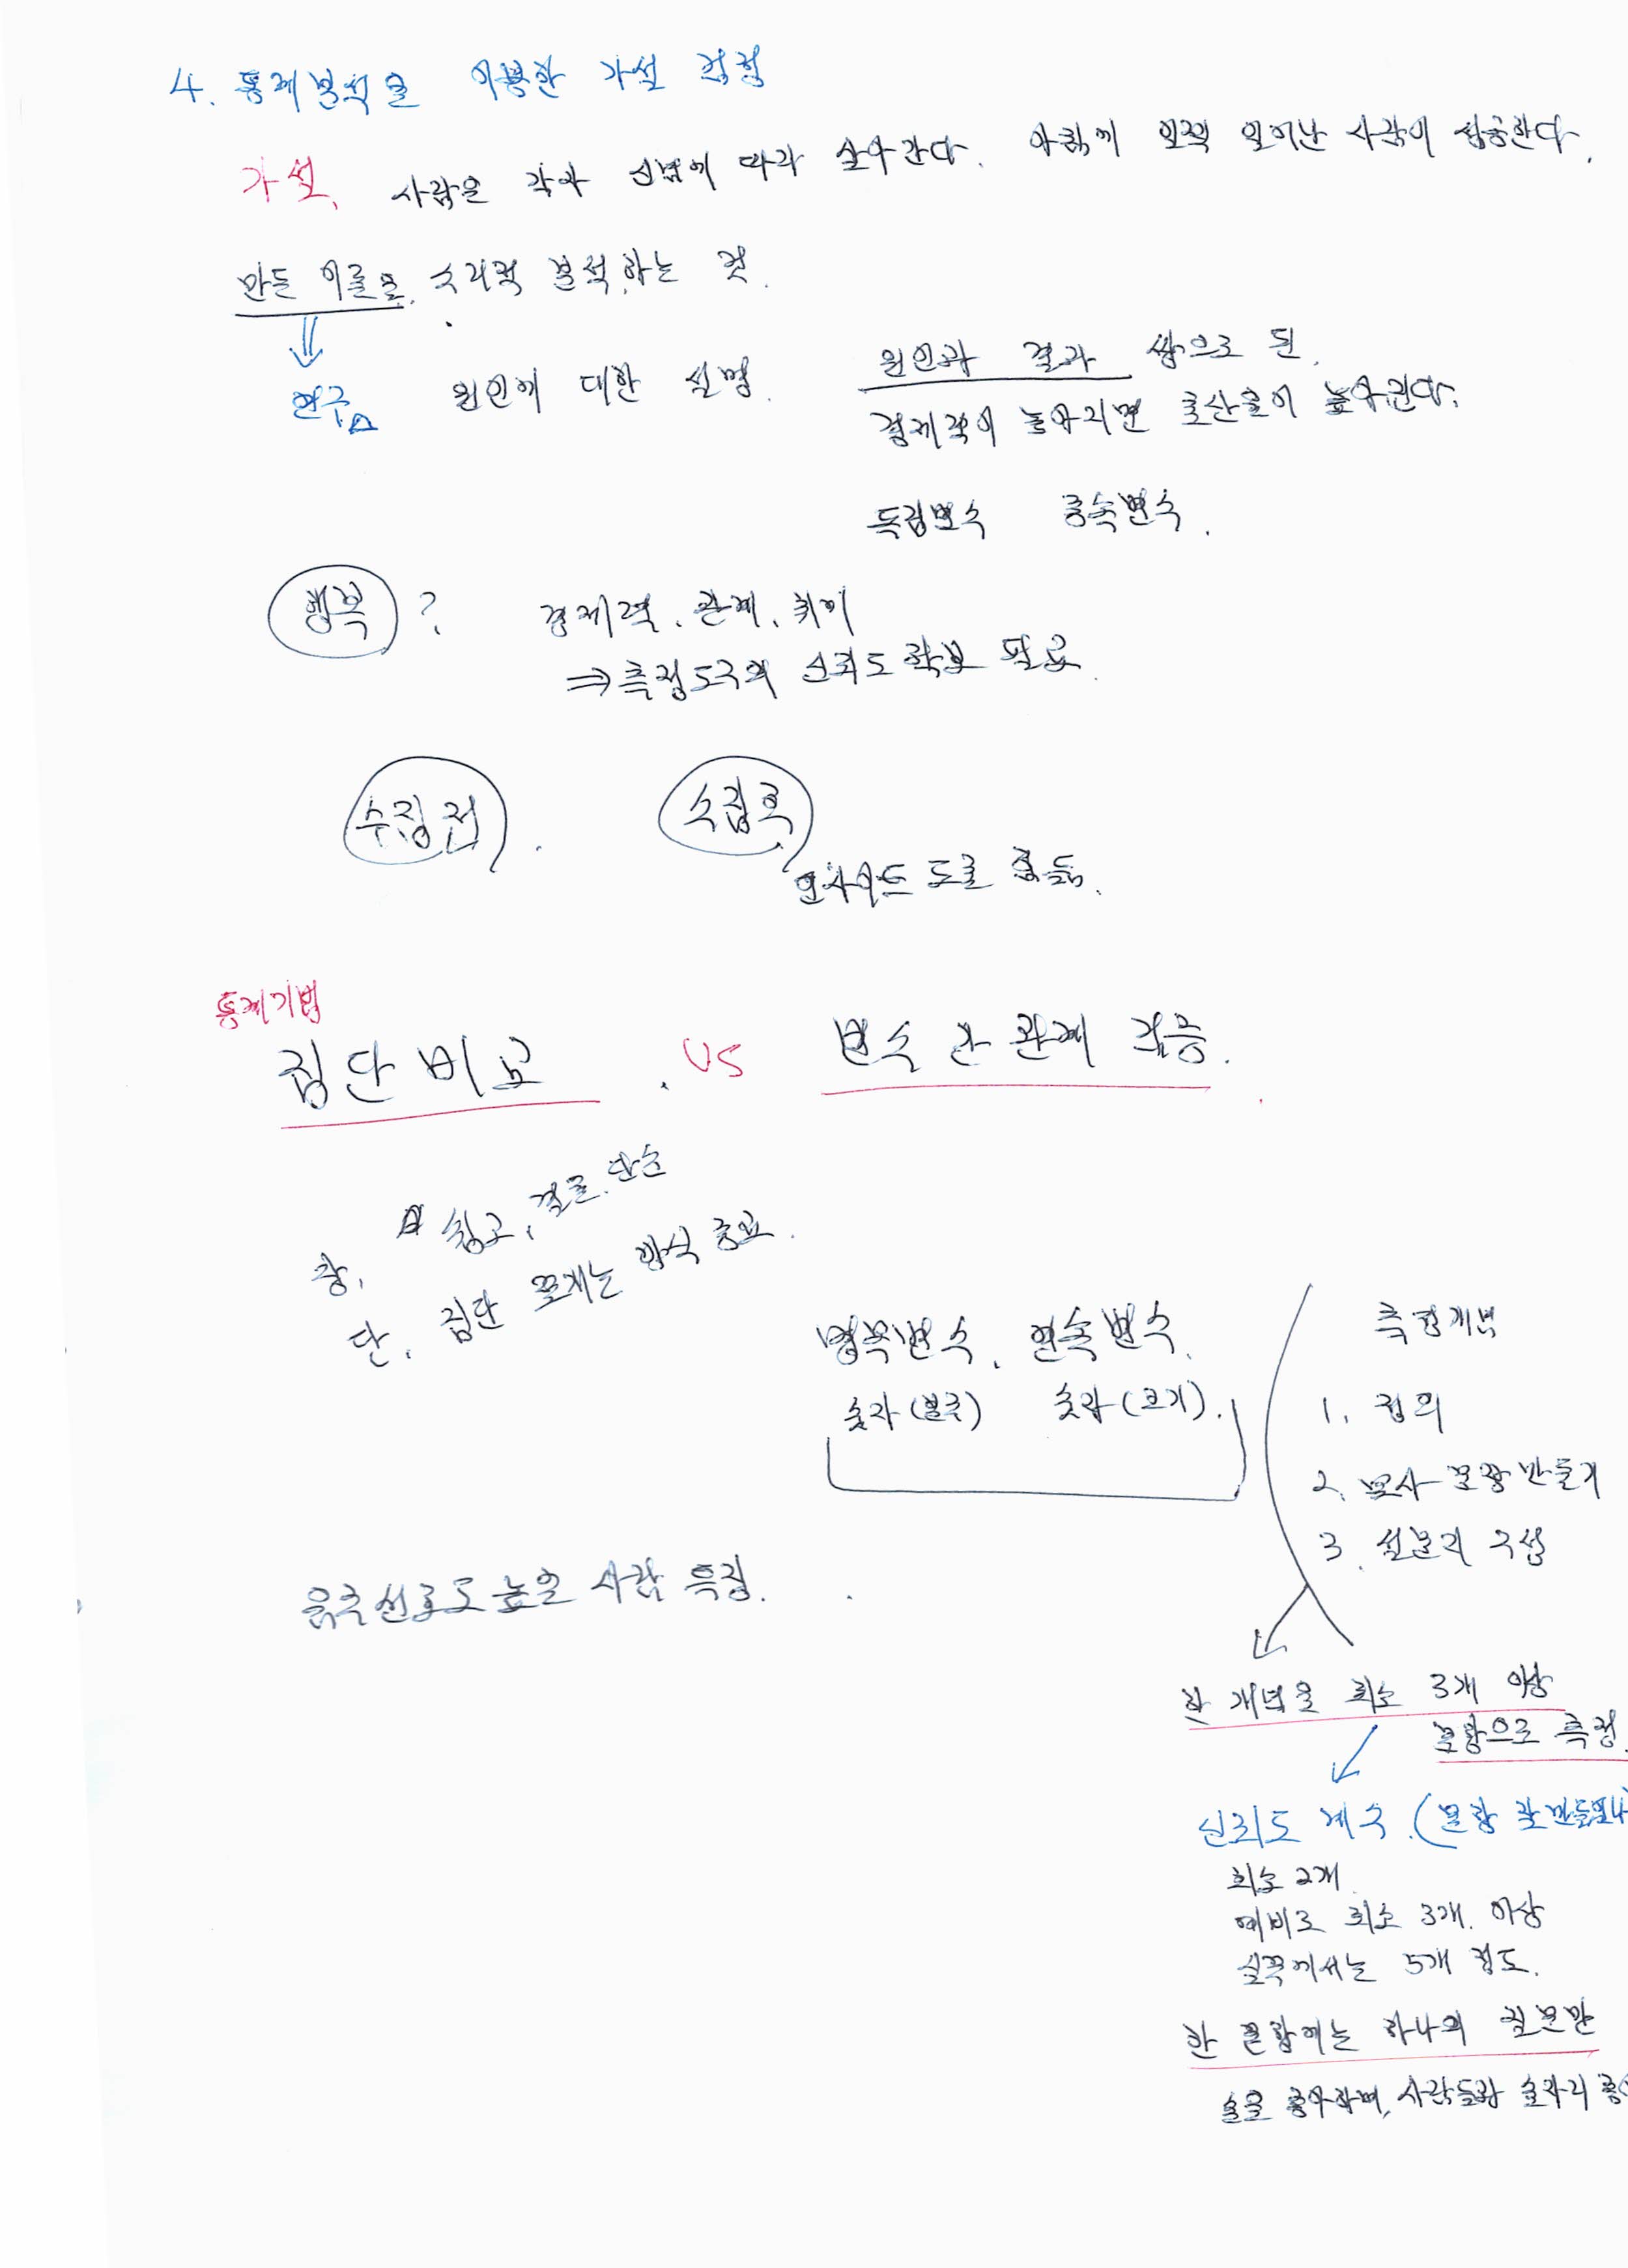 4. 통계분석을 이용한 가설 검정
가설, 사람은 각자 신념에 따라 살아간다. 아침에 일찍 일어난 사람이 성공한다.
만든 이론을 수리적 분석하는 것.
연구 원인에 대한 설명.
원인과 결과 쌍으로 된.
경제력이 높아지면 출산율이 높아진다.
독립변수 종속변수.
행복 ? 경제력, 관계, 취미
⇒ 측정도구의 신뢰도 확보 필요.
수집 전. 수집 후
인사이드 도출 힘듦.
통계기법
집단 비교 VS 변수 간 관계 검증.
장, 쉽고, 결론 단순
단, 집단 쪼개는 방식 중요.
명목변수, 연속변수.
숫자(분류) 숫자(크기).
측정개념
1. 정의
2. 조사 문항 만들기
3. 설문지 구성
음주 선호도 높은 사람 특징.
한 개념을 최소 3개 이상
문항으로 측정.
신뢰도 계수. (문항 잘 만들었나
최소 2개.
예비로 최소 3개. 이상
실무에서는 5개 정도.
한 문항에는 하나의 질문만
술을 좋아하며, 사람들과 술자리